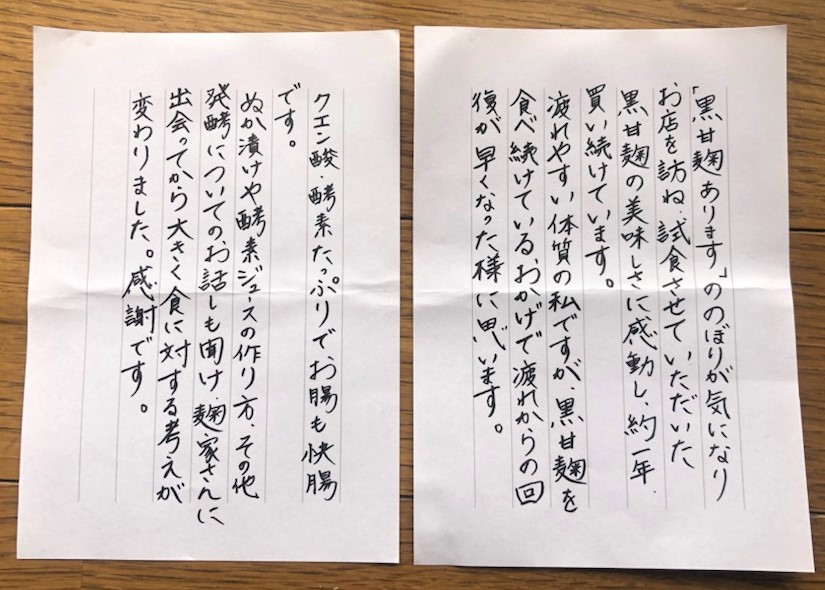 「黒甘麹あります」ののぼりが気になり
お店を訪ね、試食させていただいた
黒甘麹の美味しさに感動し、約一年、
買い続けています。
疲れやすい体質の私ですが、黒甘麹を
食べ続けているおかげで疲れからの回
復が早くなった様に思います。
クエン酸・酵素たっぷりでお腸も快腸
です。
ぬか漬けや酵素ジュースの作り方、その他
発酵についてのお話しも聞け、麹家さんに
出会ってから大きく食に対する考えが
変わりました。感謝です。